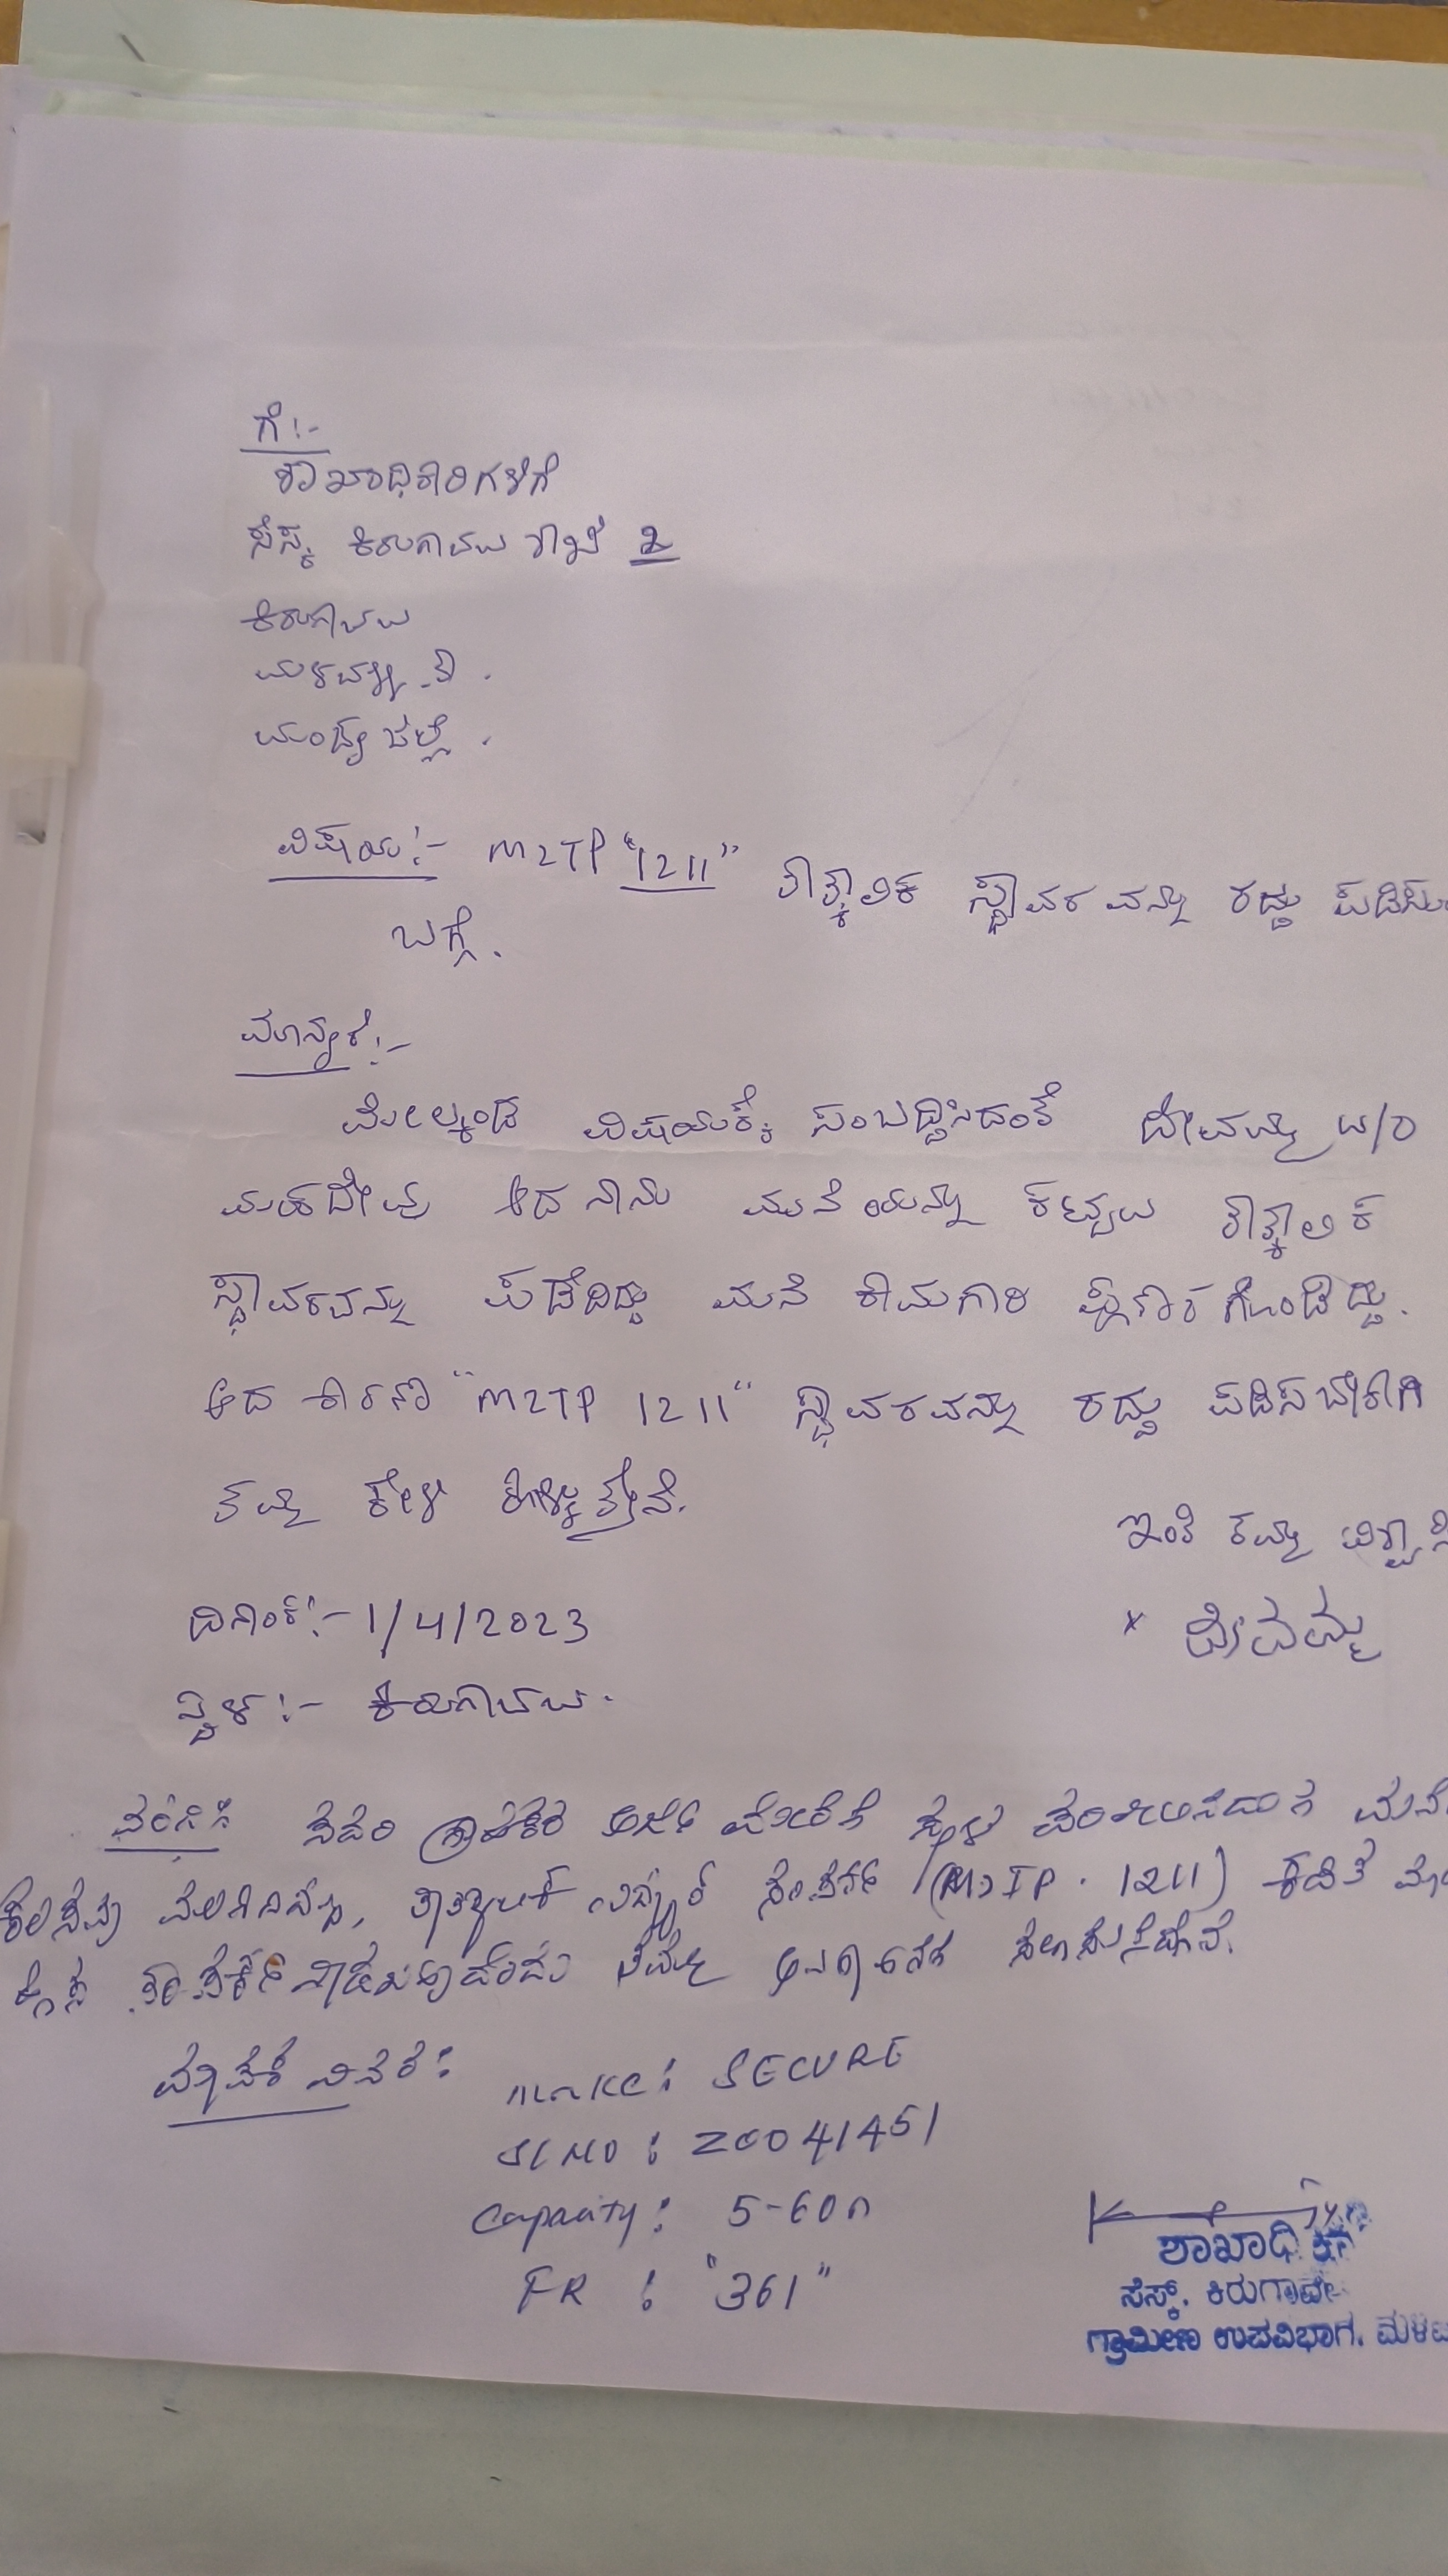 ಗೆ:-
ಶಾಖಾಧಿಕಾರಿಗಳಿಗೆ
ಸೆಸ್ಕ ಕಿರುಗಾವಲು ಶಾಖೆ 2
ಕಿರುಗಾವಲು
ಮಳವಳ್ಳಿ .ತಾ .
ಮಂಡ್ಯ ಜಿಲ್ಲೆ .
ವಿಷಯ:- M2TP "1211" ತಾತ್ಕಾಲಿಕ ಸ್ಥಾವರವನ್ನು ರದ್ದು ಪಡಿಸುವ
ಬಗ್ಗೆ.
ಮಾನ್ಯರೆ:-
ಮೇಲ್ಕಂಡ ವಿಷಯಕ್ಕೆ ಸಂಬದ್ಧಿಸಿದಂತೆ ದೇವಮ್ಮ W/O
ಮಹದೇವು ಆದ ನಾನು ಮನೆಯನ್ನು ಕಟ್ಟಲು ತಾತ್ಕಾಲಿಕ
ಸ್ಥಾವರವನ್ನು ಪಡೆದಿದ್ದು ಮನೆ ಕಾಮಗಾರಿ ಪೂರ್ಣಗೊಂಡಿದ್ದು.
ಆದ ಕಾರಣ "M2TP 1211" ಸ್ಥಾವರವನ್ನು ರದ್ದು ಪಡಿಸಬೇಕಾಗಿ
ತಮ್ಮ ಕೇಳಿ ಕೊಳ್ಳುತ್ತೇನೆ.
ಇಂತಿ ತಮ್ಮ ವಿಶ್ವಾಸಿ
x ದೇವಮ್ಮ
ದಿನಾಂಕ:- 1/4/2023
ಸ್ಥಳ:- ಕಿರುಗಾವಲು.
ವರದಿ ಸದರಿ ಗ್ರಾಹಕರ ಅರ್ಜಿ ಮೇರೆಗೆ ಸ್ಥಳ ಪರಿಶೀಲಿಸಿದಾಗ ಮನೆ
ಕೆಲಸವು ತಾತ್ಕಾಲಿಕ ವಿದ್ಯುತ್ (M2TP. 1211)
ತಮ್ಮ
ಮಾಪಕ ವಿವರ:
make: SECURE
Sl NO : 20041451
Capacity: 5-60A
FR : "361"
ಶಾಖಾಧಿ
ಸೆಸ್ಕ್, ಕಿರುಗಾವ
ಗ್ರಾಮೀಣ ಉಪವಿಭಾಗ. ಮಳವ